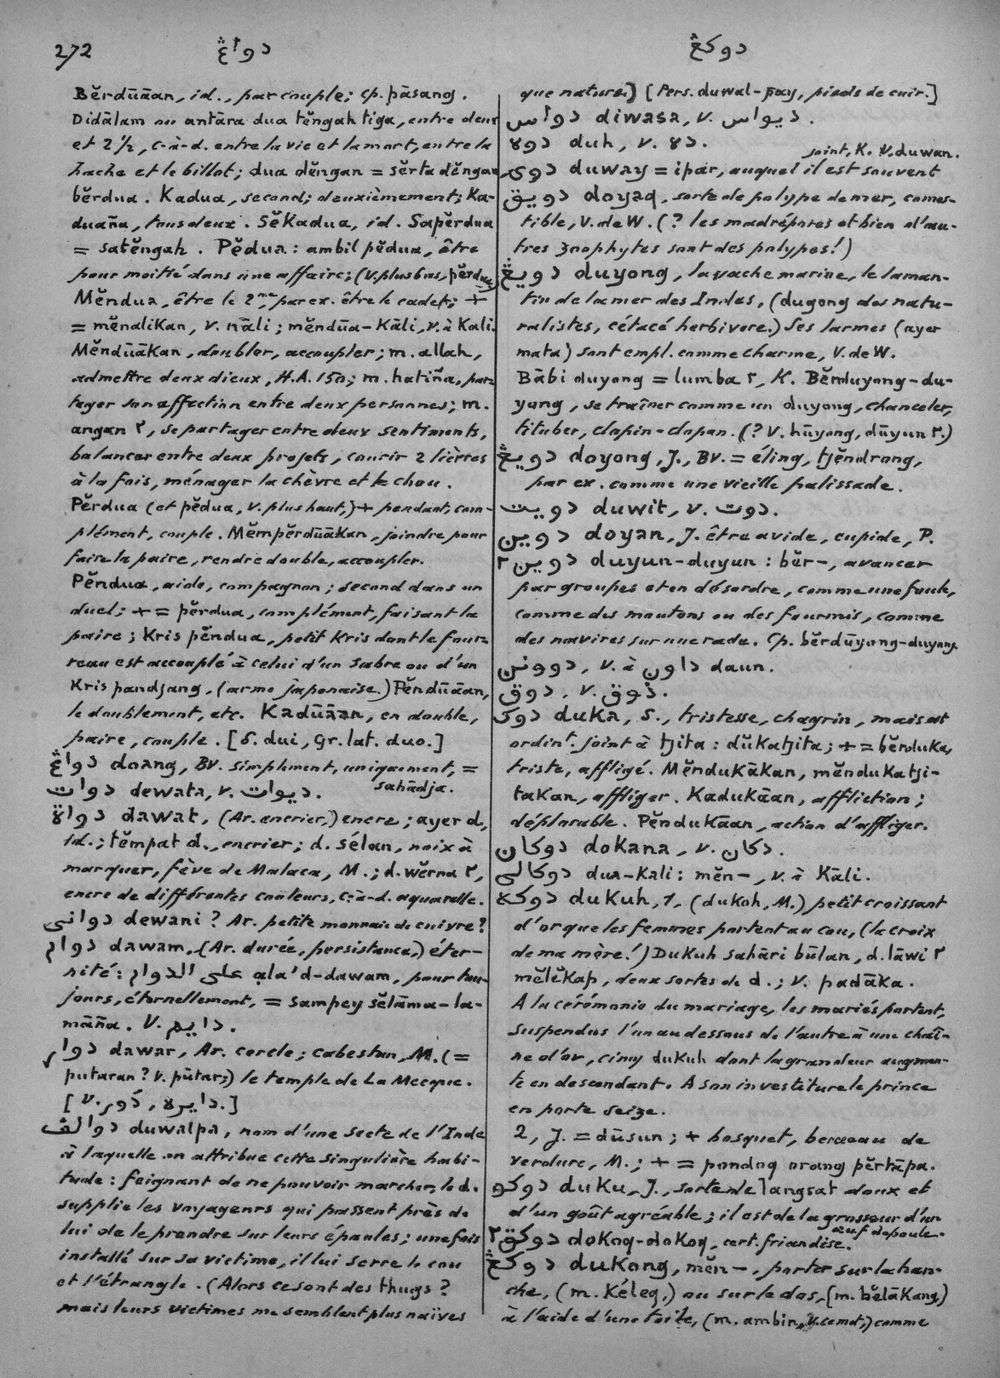 272 دواڠ دوكڠ
Bĕrdūāan, id., par couple; cp. pāsang.
Didālam ou antāra dua tĕngah tiga, entre deux
et 2½, c-à-d. entre la vie et la mort, entre la
hache et le billot; dua dĕngan = sĕrta dĕngan
bĕrdua. Kadua, second; deuxièmement; Ka-
duaña, tous deux. Sĕkadua, id. Sapĕrdua
= satĕngah. Pĕdua: ambil pĕdua, être
pour moitié dans une affaire; (V. plus bas, pĕrdua)
Mĕndua, être le 2me, par ex. être le cadet; +
= mĕnalikan, v. nāli; mĕndūa-Kāli, v. à Kali.
MĕndūāKan, doubler, accoupler; m. allah,
admettre deux dieux, H.A. 150; m. hatiña, par-
tager son affection entre deux personnes; m.
angan ٢, se partager entre deux sentiments,
balancer entre deux projets, courir 2 lièvres
à la fois, ménager la chèvre et le chou.
Pĕrdua (et pĕdua, v. plus haut,) + pendant, com-
plément, couple. MĕmpĕrdūāKan, joindre pour
faire la paire, rendre double, accoupler.
Pĕndua, aide, compagnon; second dans un
duel; + = pĕrdua, complément, faisant la
paire; Kris pĕndua, petit Kris dont le four-
reau est accouplé à celui d'un sabre ou d'un
Kris pandjang. (arme japonaise.) Pĕndūāan,
le doublement, etc. Kadūāan, en double,
paire, couple. [S. dui, Gr. lat. duo.]
دواڠ doang, BV. simplement, uniquement, =
sahādja.
دوات dewata, v. ديوات.
دواة dawat, (Ar. encrier,) encre; ayer d.,
id.; tĕmpat d., encrier; d. sélan, noix à
marquer, fève de Malaca, M.; d. wĕrna ٢,
encre de différentes couleurs, c-à-d. aquarelle.
دوانى dewani? Ar. petite monnaie de cuivre?
دوام dawam, (Ar. durée, persistance,) éter-
nité: على الدوام ala'd-dawam, pour tou-
jours, éternellement, = sampey sĕlāma-la-
māña. V. دايم.
دوار dawar, Ar. cercle; cabestan, M. (=
putaran? v. pūtar;) le temple de La Mecque.
[V. دايره, دَور.]
دوالڤ duwalpa, nom d'une secte de l'Inde
à laquelle on attribue cette singulière habi-
tude: feignant de ne pouvoir marcher, le d.
supplie les voyageurs qui passent près de
lui de le prendre sur leurs épaules; une fois
installé sur sa victime, il lui serre le cou
et l'étrangle. (Alors ce sont des thugs?
mais leurs victimes me semblent plus naïves
que nature.) [Pers. duwal-pay, pieds de cuir.]
دواس diwasa, v. ديواس.
دوه duh, v. ده.
joint, K. V. duwan.
دوى duway = ipar, auquel il est souvent
دويق doyaq, sorte de polype de mer, comes-
tible, V. de W. (? les madrépores et bien d'au-
tres zoophytes sont des polypes!)
دويڠ duyong, la vache marine, le laman-
tin de la mer des Indes, (dugong des natu-
ralistes, cétacé herbivore.) Ses larmes (ayer
mata) sont empl. comme charme, V. de W.
Bābi duyong = lumba ٢, K. Bĕrduyong-du-
yong, se traîner comme un duyong, chanceler,
tituber, clopin-clopan. (? V. hūyong, dūyun ٢.)
دويڠ doyong, J., BV. = éling, tjĕndrong,
par ex. comme une vieille palissade.
دويت duwit, v. دوت.
دوين doyan, J. être avide, cupide, P.
دوين٢ duyun-duyun: bĕr-, avancer
par groupes et en désordre, comme une foule,
comme des moutons ou des fourmis, comme
des navires sur une rade. Cp. bĕrdūyong-duyong.
دوونن, v. à داون daun.
دوق, v. ذوق.
دوك duKa, S., tristesse, chagrin, mais est
ordint. joint à tjita: dŭkatjita; + = bĕrduKa,
triste, affligé. MĕnduKāKan, mĕnduKatji-
taKan, affliger. KaduKāan, affliction;
déplorable. PĕnduKāan, action d'affliger.
دوكان doKana, v. دكان.
دوكالى dua-Kali: mĕn-, v. à Kāli.
دوكه duKuh, 1, (duKoh, M.) petit croissant
d'or que les femmes portent au cou, (la croix
de ma mère!) DuKuh sahāri būlan, d. lāwi ٢
mĕlĕKap, deux sortes de d.; V. padāka.
A la cérémonie du mariage, les mariés portent,
suspendus l'un au dessous de l'autre à une chaî-
ne d'or, cinq duKuh dont la grandeur augmen-
te en descendant. A son investiture le prince
en porte seize.
2, J. = dūsun; + bosquet, berceau de
verdure, M.; + = pondoq orang pĕrtāpa.
دوكو duKu, J., sorte de langsat doux et
d'un goût agréable; il est de la grosseur d'un
œuf de poule.
دوكق٢ doKoq-doKoq, cert. friandise.
دوكڠ duKong, mĕn-, porter sur la han-
che, (m. Kéleq,) ou sur le dos, (m. bĕlāKang,)
à l'aide d'une toile, (m. ambin, V. ce mot,) comme